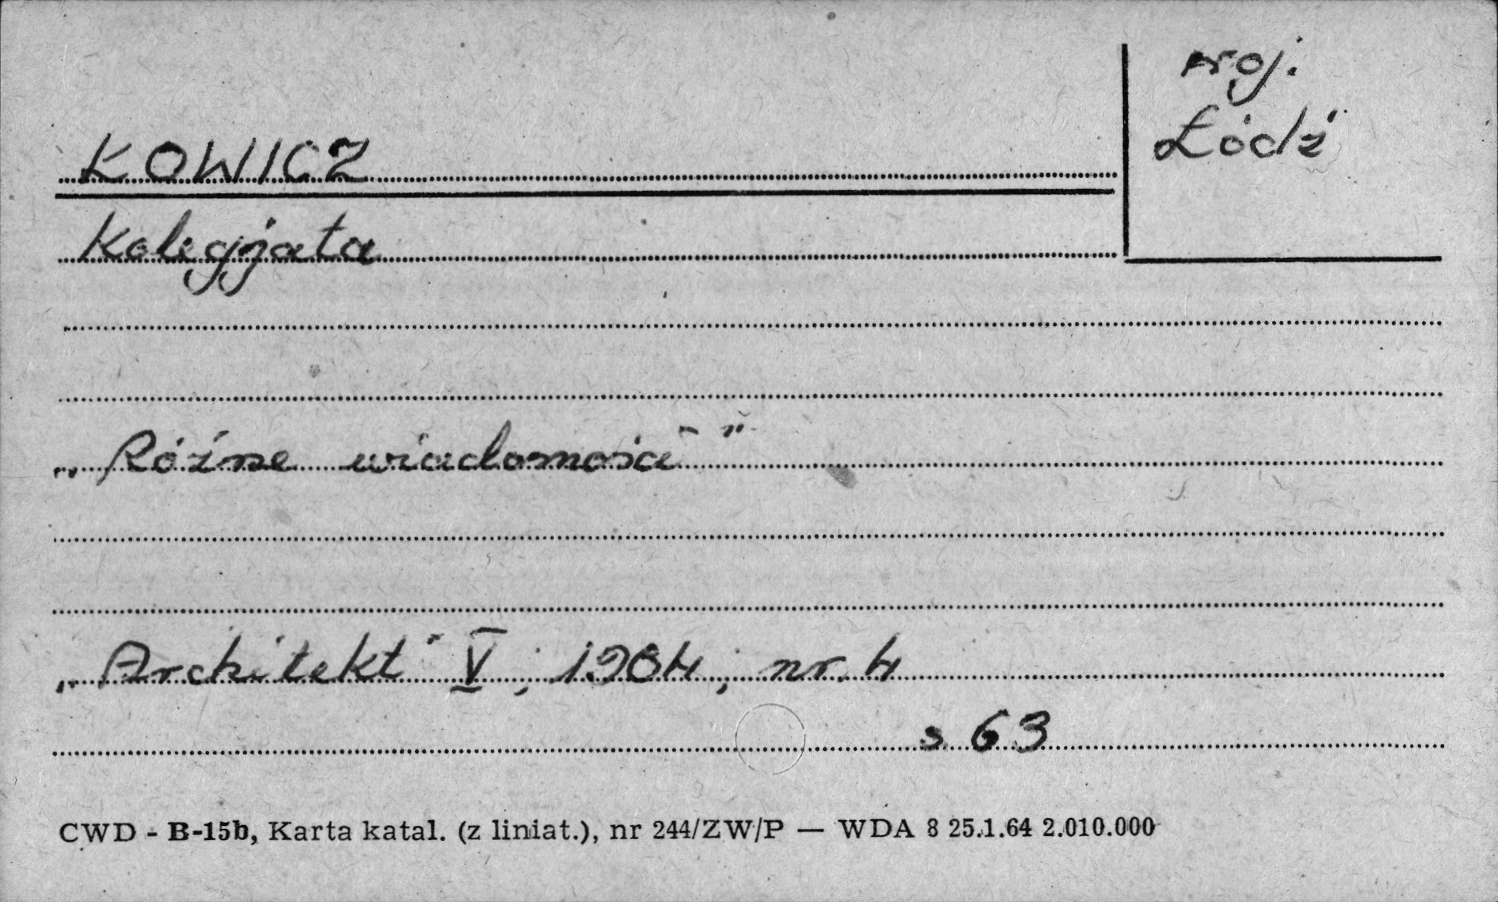 woj.
Łódź
ŁOWICZ
Kolegjata
„Różne wiadomości"
„Architekt" V; 1904; nr. 4
s 63
CWD - B-15b, Karta katal. (z liniat.), nr 244/ZW/P — WDA 8 25.1.64 2.010.000